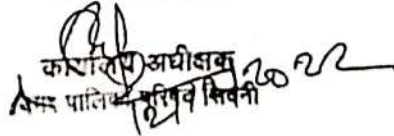 कार्यालय अधीक्षक
नगर पालिका परिषद सिवनी
2022